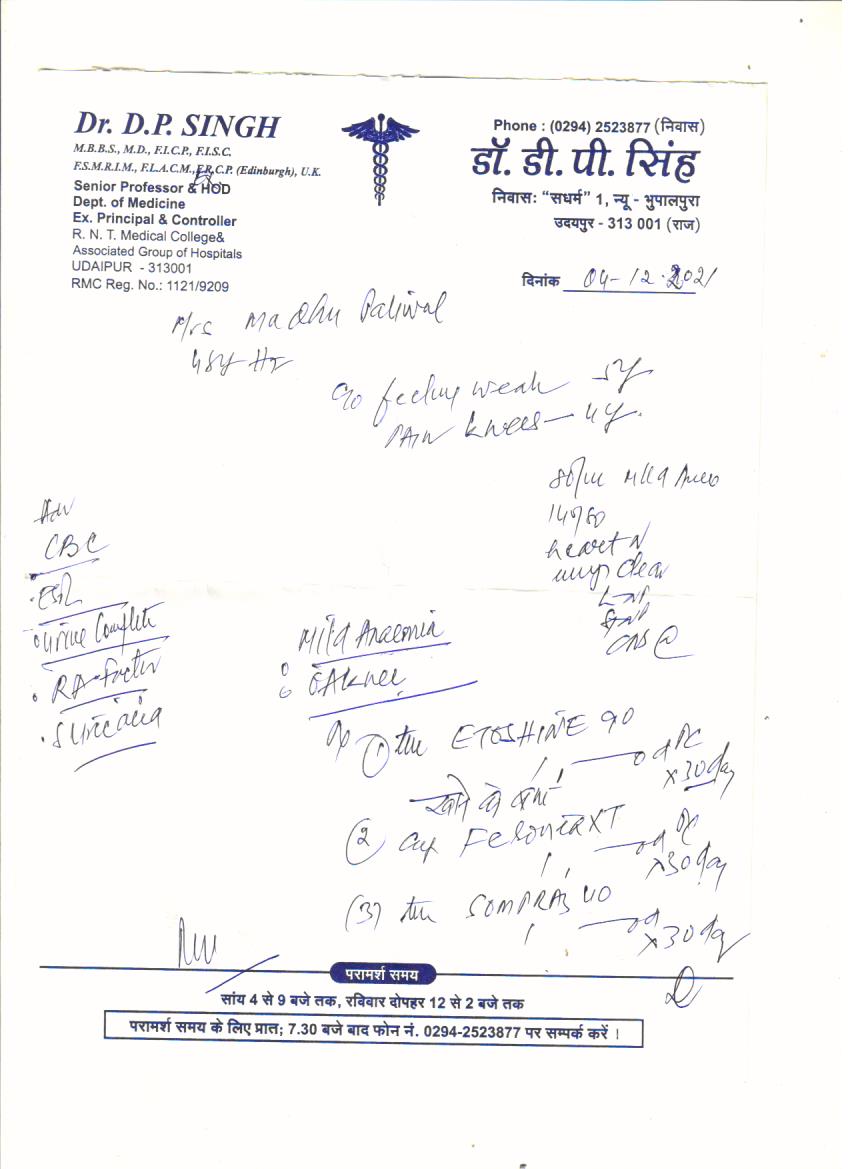 Dr. D.P. SINGH
M.B.B.S., M.D., F.I.C.P., F.I.S.C.
F.S.M.R.I.M., F.L.A.C.M., F.R.C.P. (Edinburgh), U.K.
Senior Professor & HOD
Dept. of Medicine
Ex. Principal & Controller
R. N. T. Medical College&
Associated Group of Hospitals
UDAIPUR - 313001
RMC Reg. No.: 1121/9209
Phone : (0294) 2523877 (निवास)
डॉ. डी. पी. सिंह
निवास: “सधर्म” 1, न्यू - भुपालपुरा
उदयपुर - 313 001 (राज)
दिनांक 04-12-2021
Mrs Madhu Paliwal
48y
c/o feeling weak 5y
PAIN knees - 4y.
80/m Mild
heart N
lungs clear
CNS
Adv
CBC
ESR
Urine Complete
RA-Factor
S Uric acid
Mild Anaemia
OA knee
(1) ETOSHINE 90
1 od PC x 30 day
खाने के बाद
(2) Cap XT
1 od x 30 day
(3) SOMPRAZ 40
1 od x 30 day
परामर्श समय
सांय 4 से 9 बजे तक, रविवार दोपहर 12 से 2 बजे तक
परामर्श समय के लिए प्रात; 7.30 बजे बाद फोन नं. 0294-2523877 पर सम्पर्क करें ।